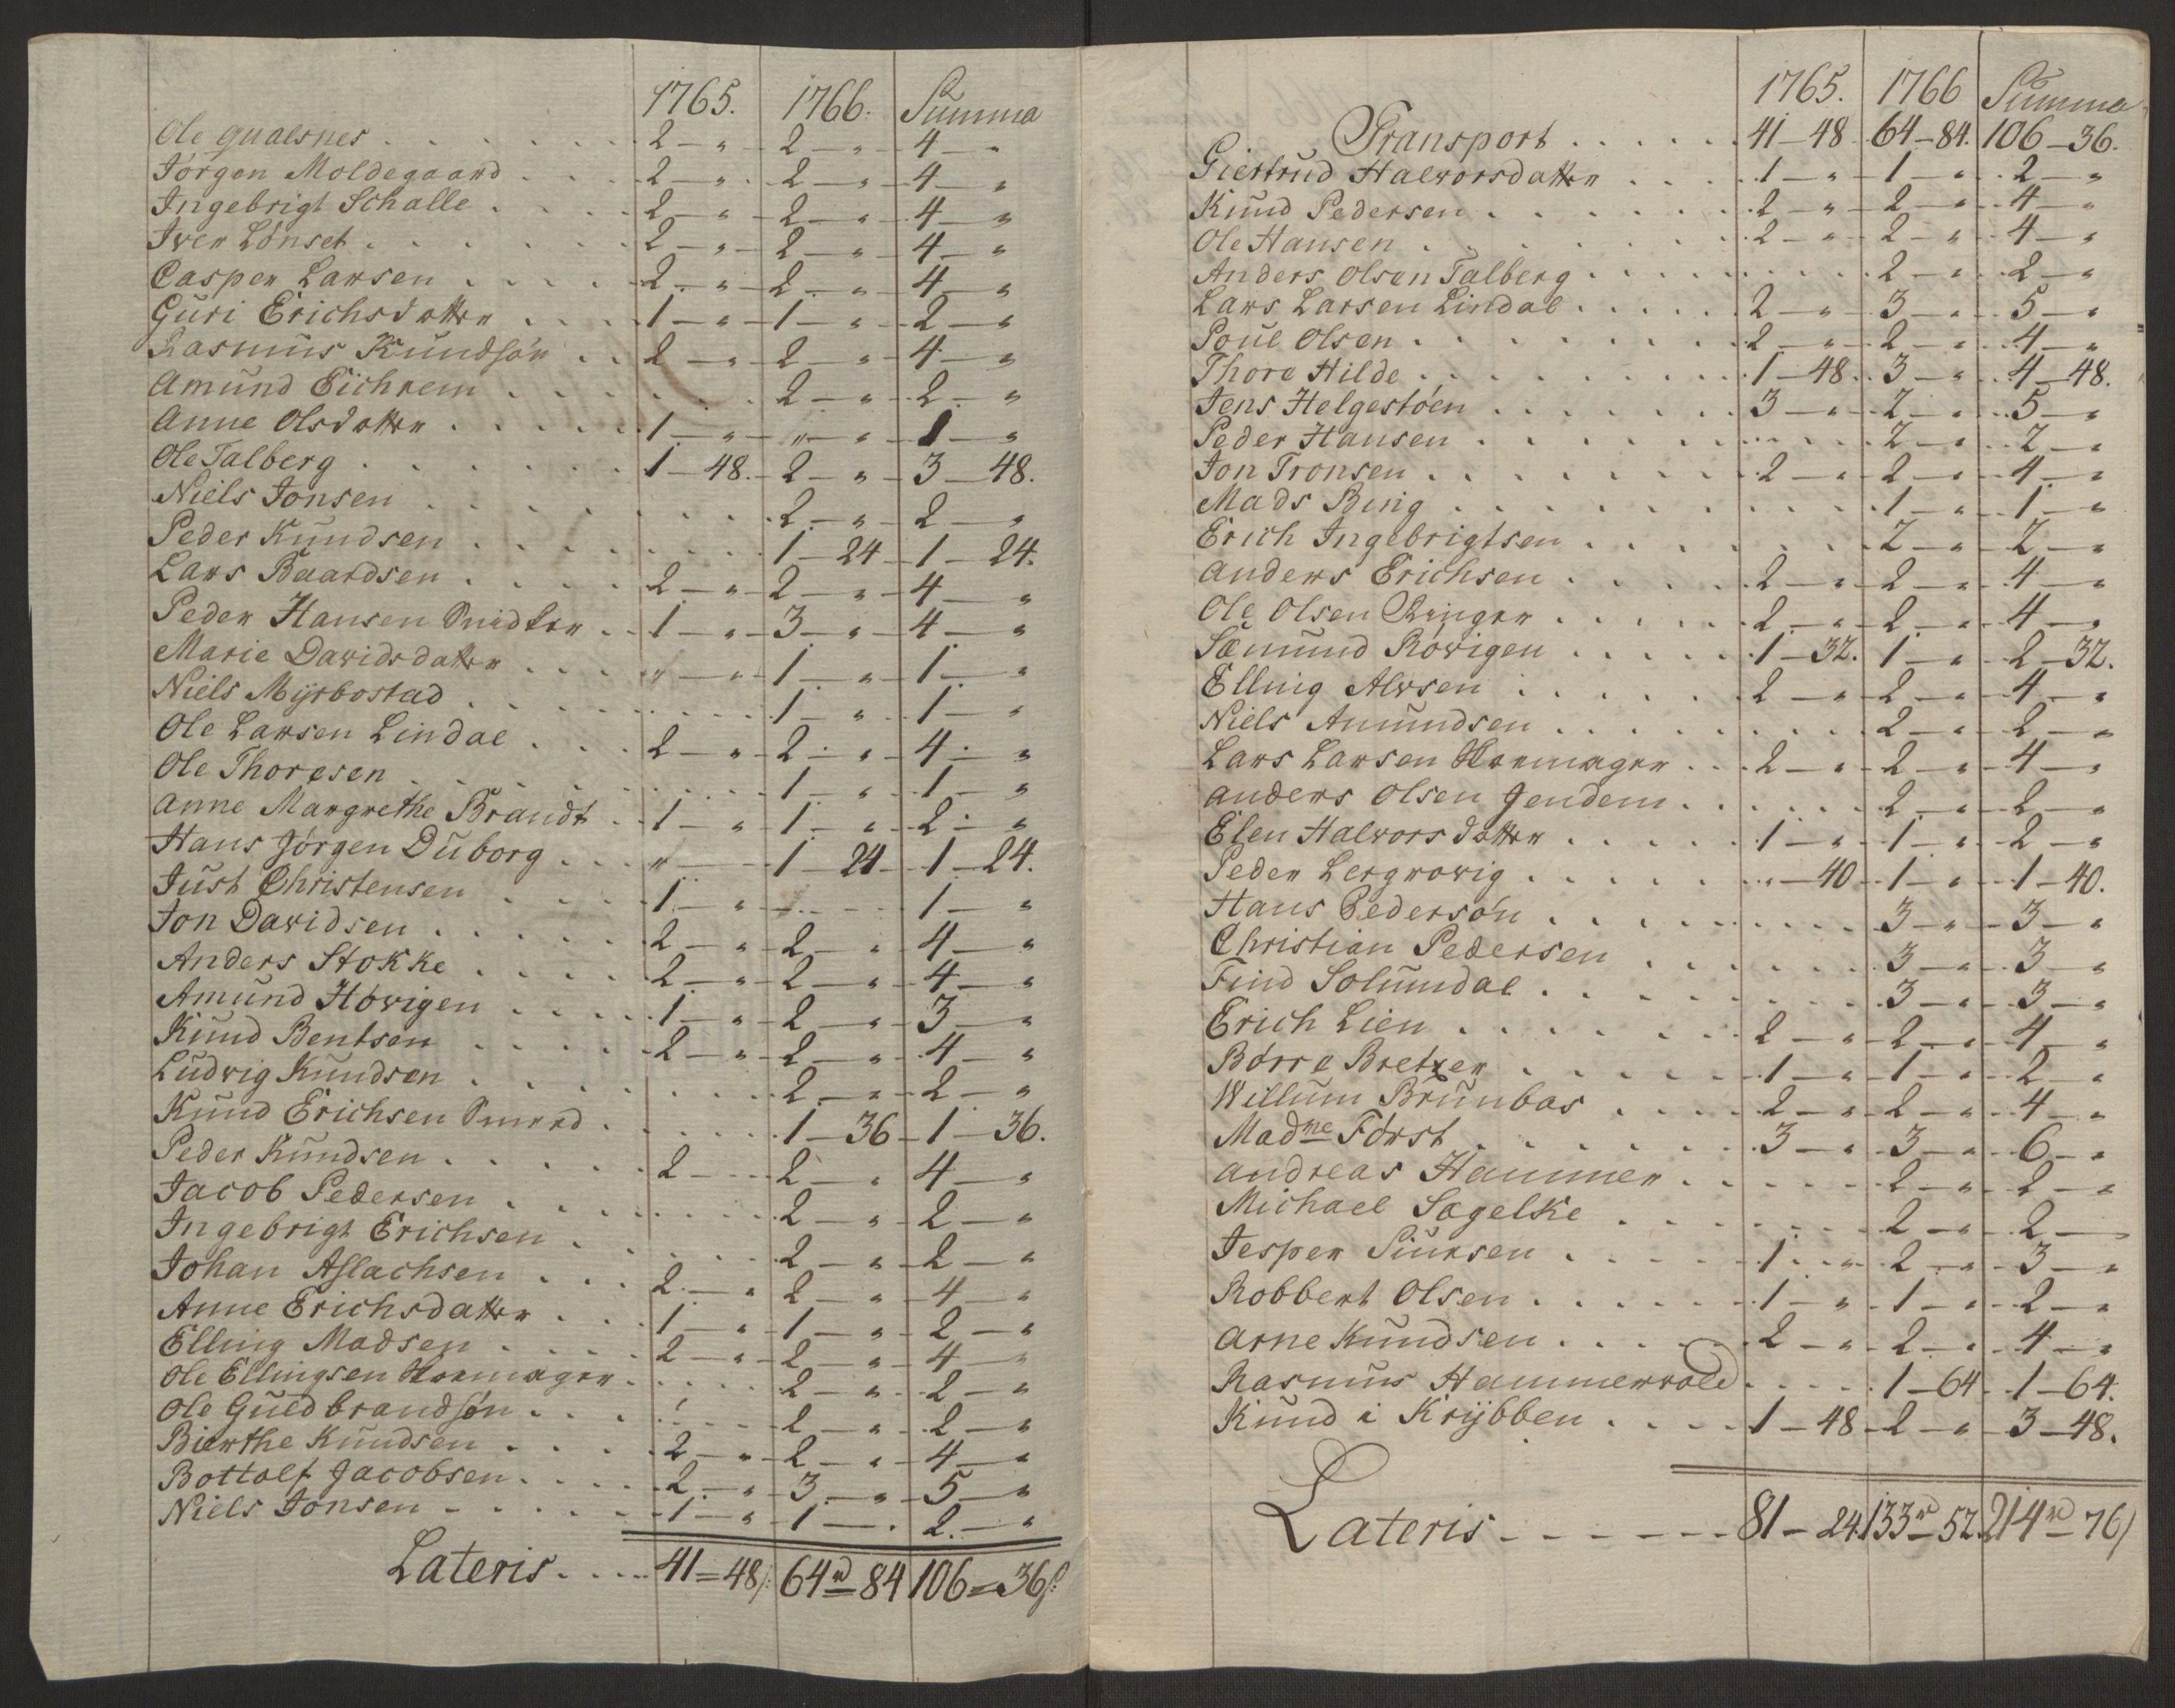 1765. 1766. Summa
Ole Qualsnes . . . . . . 2 — " 2 — " 4 — "
Jørgen Moldegaard . . . 2 — " 2 — " 4 — "
Ingebrigt Schalle . . . . 2 — " 2 — " 4 — "
Iver Lønset . . . . . . 2 — " 2 — " 4 — "
Casper Larsen . . . . 2 — " 2 — " 4 — "
Guri Erichsdatter . . . 1 — " 1 — " 2 — "
Rasmus Knudsøn . . 2 — " 2 — " 4 — "
Amund Eichrem . . . . . 2 — " 2 — "
Anne Olsdatter . . . . . 1 — " " — " 1 — "
Ole Talberg . . . . . . 1 — 48. 2 — " 3 — 48.
Niels Jonsen . . . . . . 2 — " 2 — "
Peder Knudsen . . . . . . 1 — 24 1 — 24.
Lars Baardsen . . . . 2 — " 2 — " 4 — "
Peder Hansen Snidker . . 1 — " 3 — " 4 — "
Marie Davidsdatter . . . " — " 1 — " 1 — "
Niels Mÿrbostad . . . . . 1 — " 1 — "
Ole Larsen Lindal . . . 2 — " 2 — " 4 — "
Ole Thoresen . . . . . . 1 — " 1 — "
Anne Margrethe Brandt . 1 — " 1 — " 2 — "
Hans Jørgen Duborg . . . " — 1 — 24 1 — 24.
Just Christensen . . . 1 — " — 1 — "
Jon Davidsen . . . . . 2 — " 2 — " 4 — "
Anders Stokke . . . . 2 — " 2 — " 4 — "
Amund Høvigen . . . . 1 — " 2 — " 3 — "
Knud Bentsen . . . . . 2 — " 2 — " 4 — "
Ludvig Knudsen . . . . . 2 — " 2 — "
Knud Erichsen Smed . . . . 1 — 36 1 — 36.
Peder Knudsen . . . . . 2 — 2 — " 4 — "
Jacob Pedersen . . . . . 2 — " 2 — "
Ingebrigt Erichsen . . . . 2 — " 2 — "
Johan Aslachsen . . . 2 — " 2 — " 4 — "
Anne Erichsdatter . . . 1 — " 1 — " 2 — "
Elling Madsen . . . . . 2 — " 2 — " 4 — "
Ole Ellingsen . . . . . 2 — " 2 — "
Ole Guldbrandsøn . . . . . 2 — " 2 — "
Bierthe Knudsen . . . . 2 — " 2 — " 4 — "
Bottolf Jacobsen . . . . 2 — " 3 — " 5 — "
Niels Jonsen . . . . . . 1 — " 1 — " 2 — "
Lateris . . . . 41 = 48 64 — 84 106 — 36
1765. 1766 Summa
Transport . . . . . . 41 — 48 64 — 84. 106 — 36.
Giertrud Halvorsdatter . . . 1 — " 1 — " 2 — "
Knud Pedersen . . . . . . 2 — " 2 — " 4 — "
Ole Hansen . . . . . . . 2 — " 2 — " 4 — "
Anders Olsen Talberg . . . . . 2 — " 2 — "
Lars Larsen Lindal . . . . . 2 — " 3 — " 5 — "
Poul Olsen . . . . . . . 2 — " 2 — " 4 — "
Thore Hilde . . . . . . . 1 — 48. 3 — " 4 — 48.
Jens Helgestøen . . . . . . 3 — " 2 — " 5 — "
Peder Hansen . . . . . . . 2 — " 2 — "
Jon Tronsen . . . . . . . 2 — " 2 — " 4 — "
Mads Bing . . . . . . . 1 — " 1 — "
Erich Ingebrigtsen . . . . . 2 — " 2 — "
Anders Erichsen . . . . . 2 — " 2 — " 4 — "
Ole Olsen Ringer . . . . . 2 — " 2 — " 4 — "
Sæmund Røvigen . . . . . 1 — 32. 1 — " 2 — 32.
Elling Alvsen . . . . . . 2 — " 2 — " 4 — "
Niels Amundsen . . . . . . 2 — " 2 — "
Lars Larsen . . 2 — " 2 — " 4 — "
Anders Olsen Jendem . . . . . 2 — " 2 — "
Elen Halvorsdatter . . . . . 1 — " 1 — " 2 — "
Peder Lergrovig . . . . . . " — 40 1 — " 1 — 40.
Hans Pedersøn . . . . . . 3 — " 3 — "
Christian Pedersen . . . . . 3 — " 3 — "
Find Solumdal . . . . . . 3 — " 3 — "
Erich Lien . . . . . . . 2 — " 2 — " 4 — "
Børre Bretzer . . . . . . 1 — " 1 — " 2 — "
Willum Brunbas . . . . 2 — " 2 — " 4 — "
Madme Først . . . . . . 3 — " 3 — " 6 — "
Andreas Hammer . . . . . 2 — " 2 — "
Michael Sagelke . . . . . 2 — " 2 —
Jesper Siursen . . . . . 1 — " 2 — " 3 — "
Robbert Olsen . . . . . . 1 — " 1 — " 2 — "
Arne Knudsen . . . . . 2 — " 2 — " 4 — "
Rasmus Hammervold . . . . 1 — 64 1 — 64.
Knud i Krÿbben . . . . 1 — 48 2 — " 3 — 48.
Lateris . . . . . . 81 — 24. 133 — 52. 214 — 76